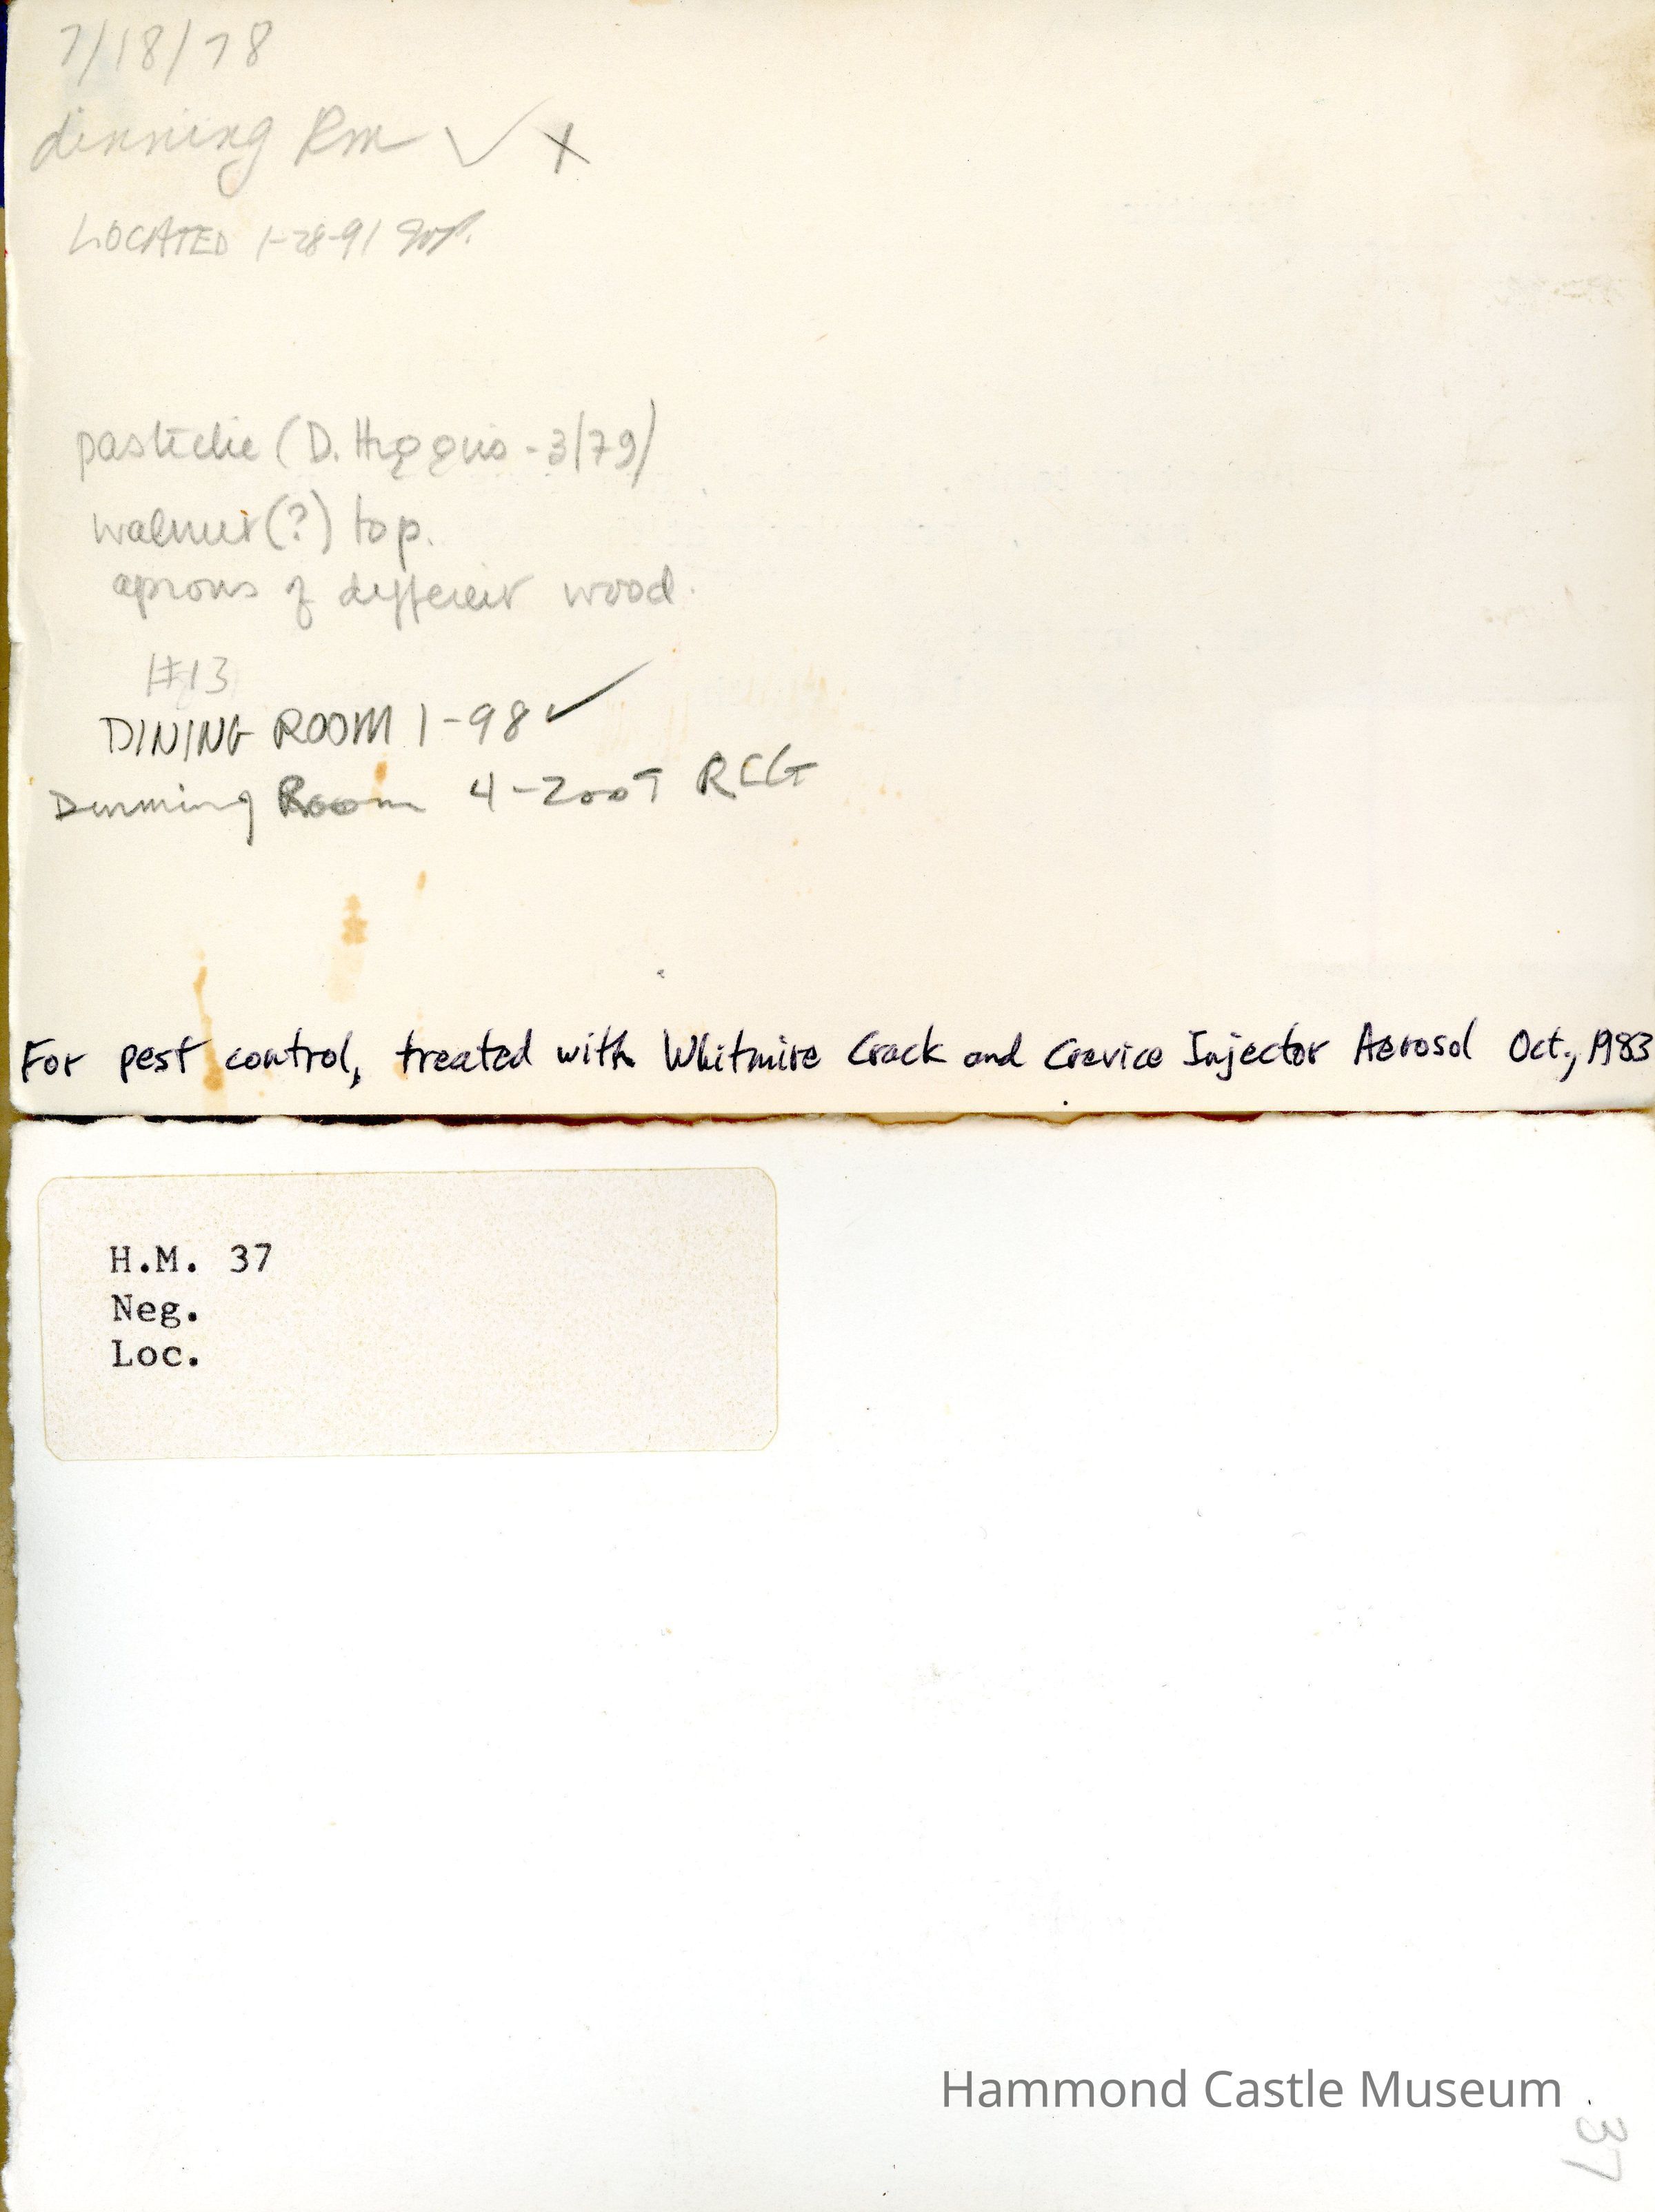 7/18/78
dinning Rm ✓ X
LOCATED 1-28-91
pastiche (D. Higgins - 3/79)
walnut(?) top.
aprons of different wood.
#13
DINING ROOM 1-98 ✓
Dinning Room 4-2007 RCG
For pest control, treated with Whitmire Crack and Crevice Injector Aerosol Oct., 1983
H.M. 37
Neg.
Loc.
Hammond Castle Museum
37